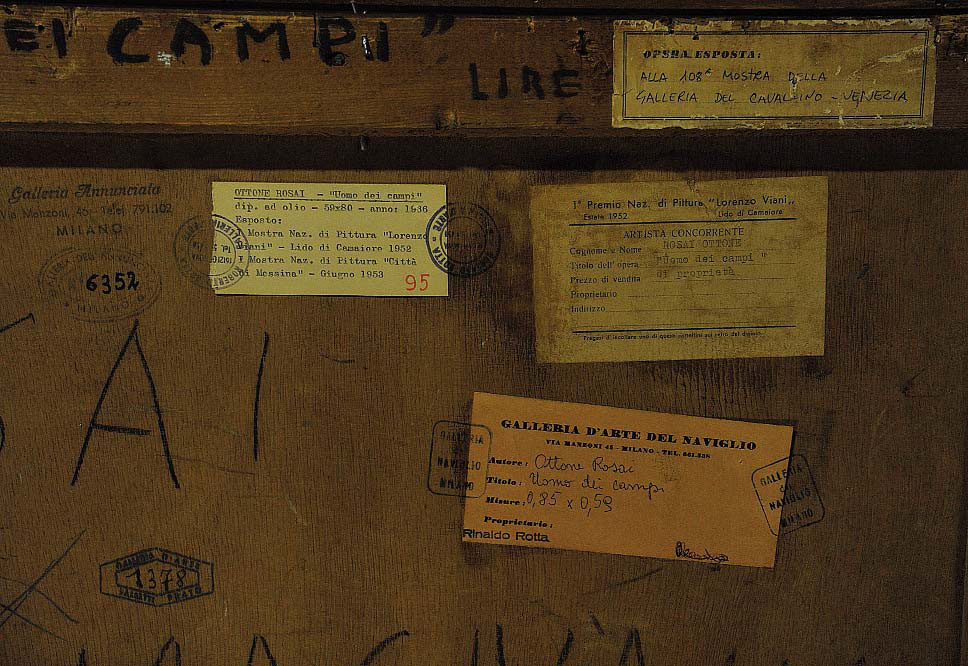 EI CAMPI"
LIRE
OPERA ESPOSTA:
ALLA 108ª MOSTRA DELLA
GALLERIA DEL CAVALLINO - VENEZIA
Galleria Annunciata
Via Manzoni, 46 - Telef. 791.102
MILANO
6352
MILANO
OTTONE ROSAI - "Uomo dei campi"
dip. ad olio - 59x80 - anno: 1936
Esposto:
Mostra Naz. di Pittura "Lorenzo
Viani" - Lido di Camaiore 1952
I Mostra Naz. di Pittura "Città
di Messina" - Giugno 1953
95
1° Premio Naz. di Pittura "Lorenzo Viani"
Estate 1952 Lido di Camaiore
ARTISTA CONCORRENTE
Cognome e Nome ROSAI OTTONE
Titolo dell'opera "Uomo dei campi"
Prezzo di vendita di proprietà
Proprietario
Indirizzo
Pregasi d'incollare uno di questi cartellini sul retro del dipinto
SAI
GALLERIA D'ARTE DEL NAVIGLIO
VIA MANZONI 45 - MILANO - TEL. 661.538
Autore: Ottone Rosai
Titolo: Uomo dei campi
Misure: 0,85 x 0,59
Proprietario:
Rinaldo Rotta
GALLERIA
NAVIGLIO
MILANO
GALLERIA
del
NAVIGLIO
MILANO
GALLERIA D'ARTE
1378
PRATO